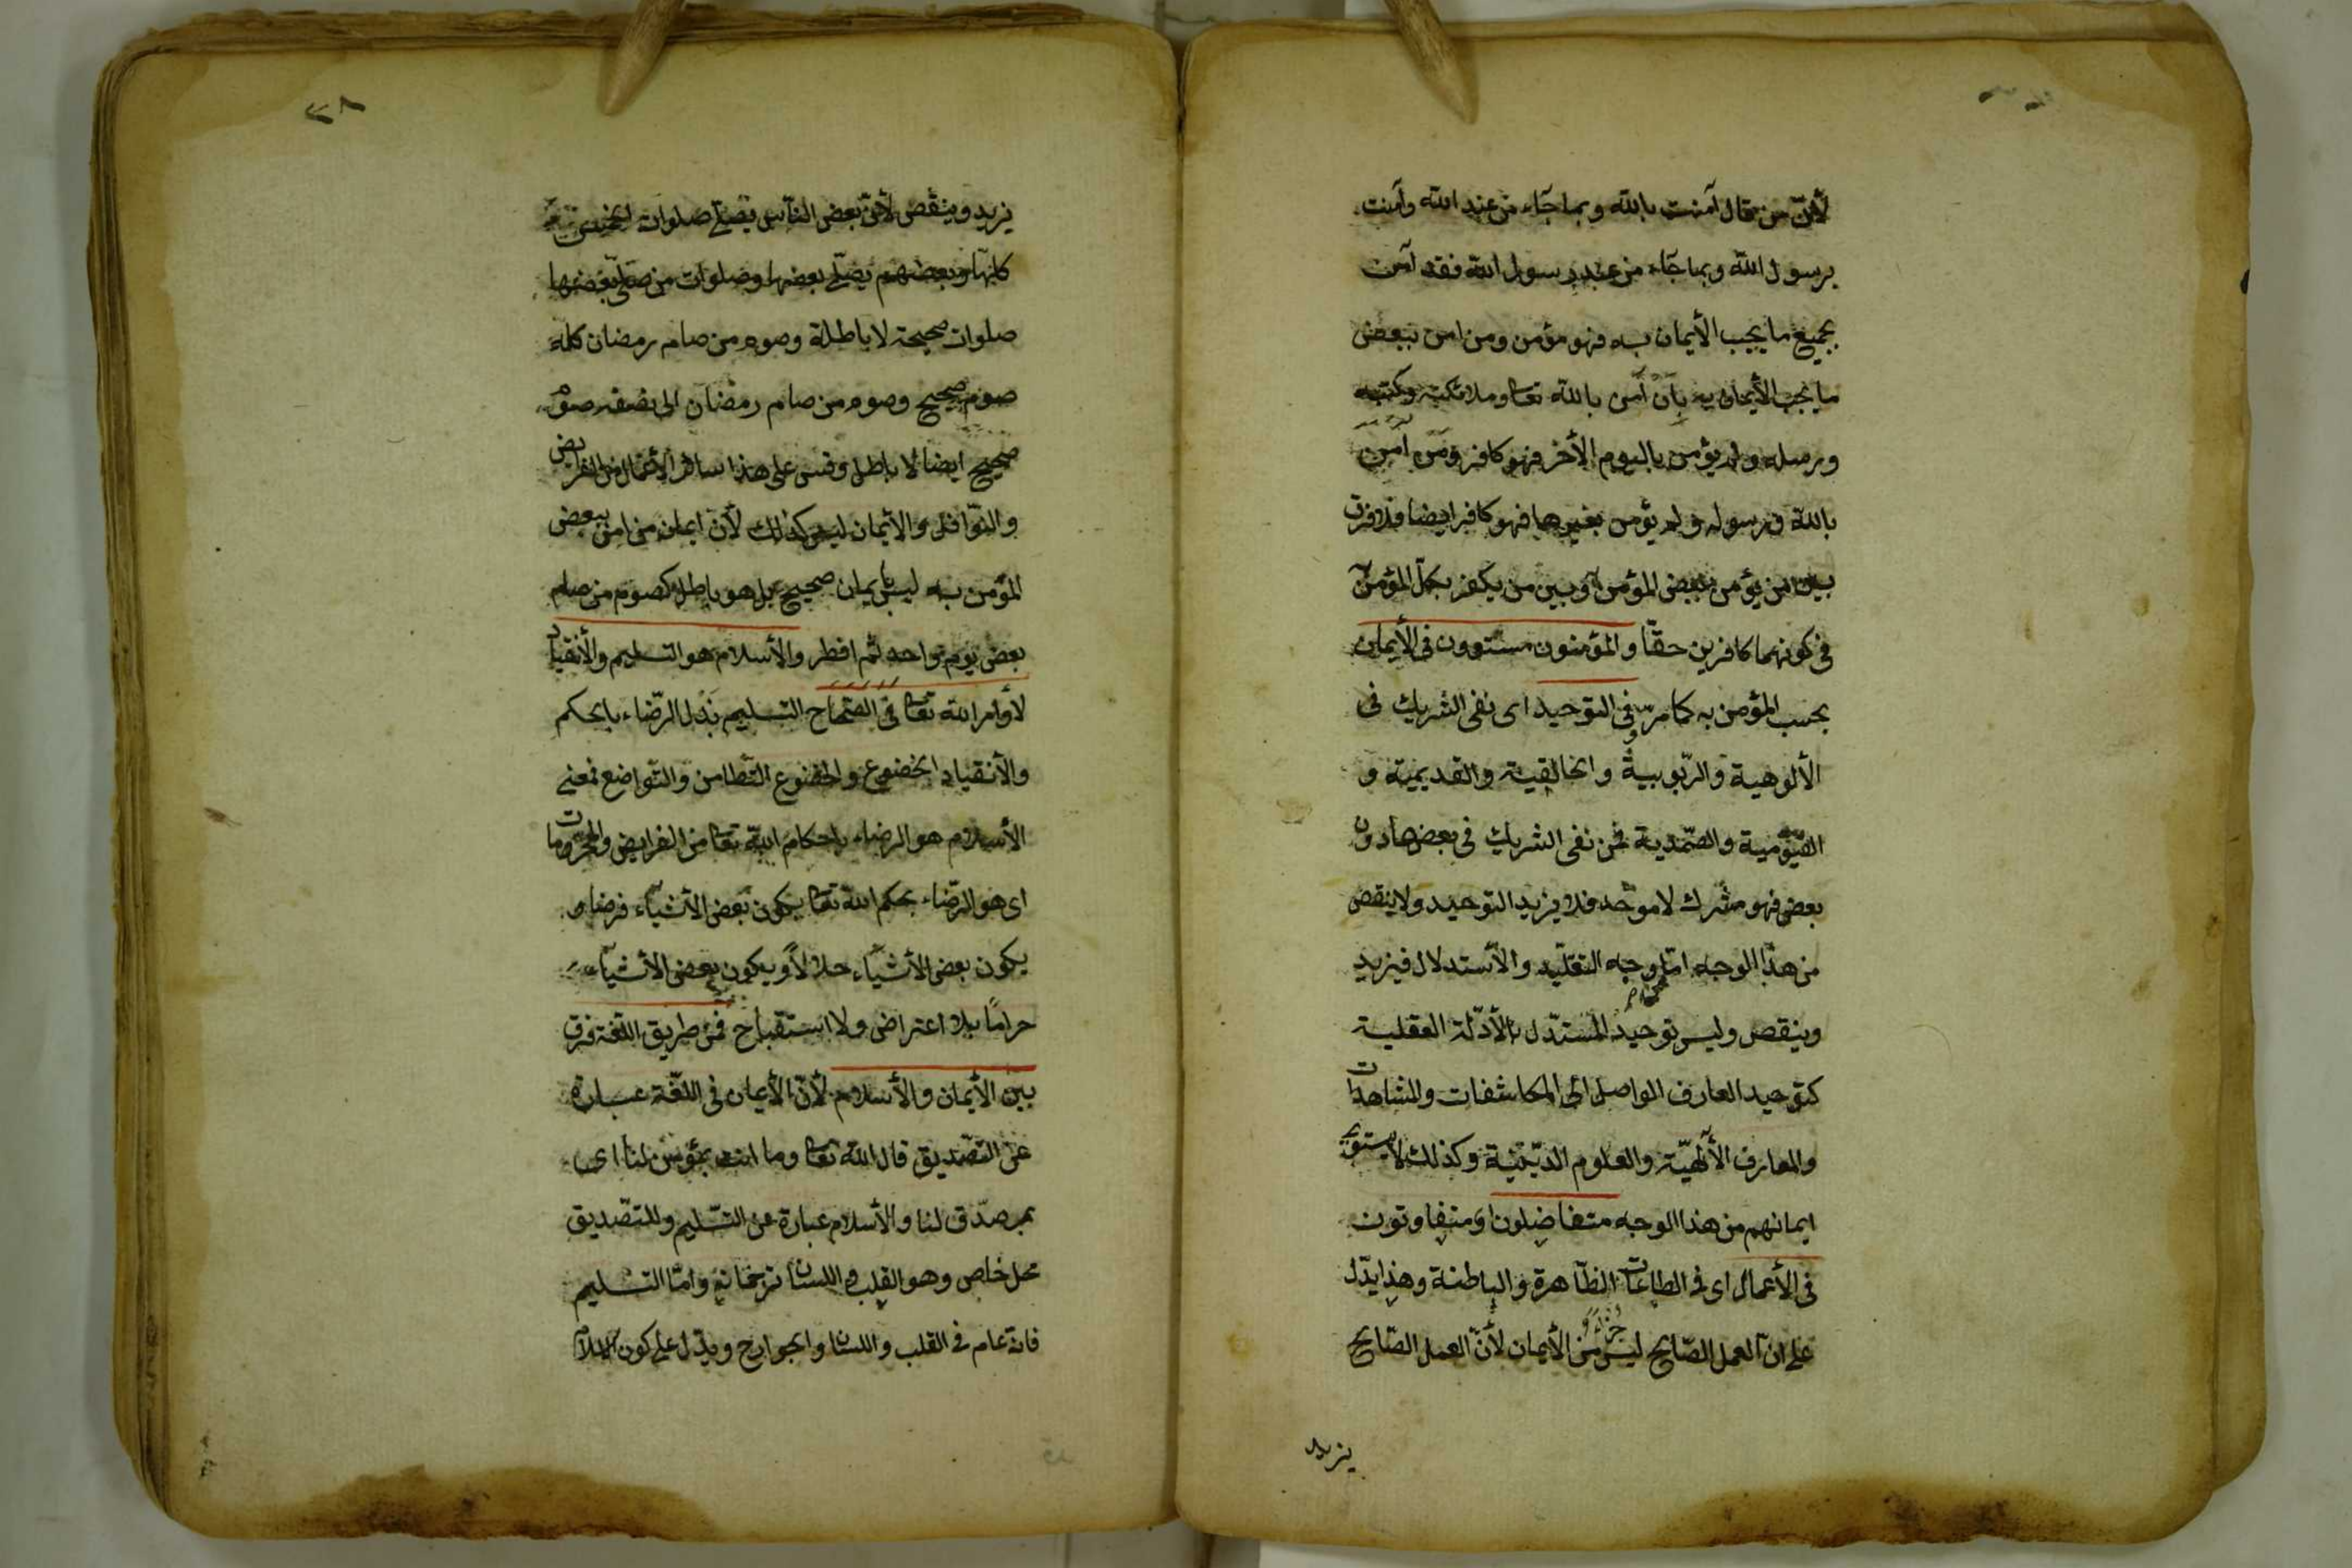 لأنّ من قال آمنت بالله وبما جاء من عند الله وآمنت
برسول الله وبما جاء من عند رسول الله فقد آمن
بجميع ما يجب الأيمان به فهو مؤمن ومن امن ببعض
ما يجب الأيمان به بأن آمن بالله تعا وملائكته وكتبه
ورسله ولم يؤمن باليوم الأخر فهو كافر ومن آمن
بالله ورسوله ولم يؤمن بغيرهما فهو كافر ايضا فلا فرق
بين من يؤمن ببعض المؤمن به وبين من يكفر بكل المؤمن به
في كونهما كافرين حقّا والمؤمنون مستوون في الأيمان
بحسب المؤمن به كما مر وفي التوحيد اى نفى الشريك فى
الألوهية والرّبوبية والخالقية والقديمية و
القيّومية والصّمدية فمن نفى الشريك فى بعضها دون
بعض فهو مشرك لا موحّد فلا يزيد التوحيد ولا ينقص
من هذا الوجه امّا من وجه التقليد والأستدلال فيزيد
وينقص وليس توحيد المستدّل بالأدّلة العقلية
كتوحيد العارف الواصل الى المكاشفات والمشاهدات
والمعارف الألهيّة والعلوم الدّينيّة وكذلك لا يستوى
ايمانهم من هذا الوجه متفاضلون اى متفاوتون
فى الأعمال اى فى الطاعات الظّاهرة والباطنة وهذا يدّل
على انّ العمل الصّالح ليس جزاءً من الأيمان لأنّ العمل الصّالح
يزيد
٢٨
يزيد وينقص لأنّ بعض النّاس يصلّي صلوات الخمس
كلّها وبعضهم يصلّي بعضها وصلوات من صلّى بعضها
صلوات صحيحة لا باطلة وصوم من صام رمضان كله
صوم صحيح وصوم من صام رمضان الى نصفه صوم
صحيح ايضا لا باطل وقس على هذا سائر الأعمال من الفرايض
والنّوافل والأيمان ليس كذلك لأن ايمان من امن ببعض
المؤمن به ليس بايمان صحيح بل هو باطل كصوم من صام
بعض يوم واحد ثم افطر والأسلام هو التسليم والأنقياد
لأوامر الله تعا فى الصّحاح التسليم بذل الرّضاء بالحكم
والأنقياد الخضوع والخضوع التّطامن والتّواضع فمعنى
الأسلام هو الرضاء باحكام الله تعا من الفرايض والمحرّومات
اى هو الرّضاء بحكم الله تعا يكون بعض الأشياء فرضا و
يكون بعض الأشياء حلالاً ويكون بعض الأشياء
حرامًا بلا اعتراض ولا استقباح فمن طريق اللّغة فرق
بين الأيمان والأسلام لأنّ الأيمان فى اللّغة عبارة
عن التّصديق قال الله تعا وما انت بمؤمن لنا اى
بمصدّق لنا والأسلام عبارة عن التّسليم وللتّصديق
محل خاص وهو القلب واللسان ترجمانه وامّا التسليم
فانه عام في القلب واللسان والجوارح ويدّل على كون الاسلام